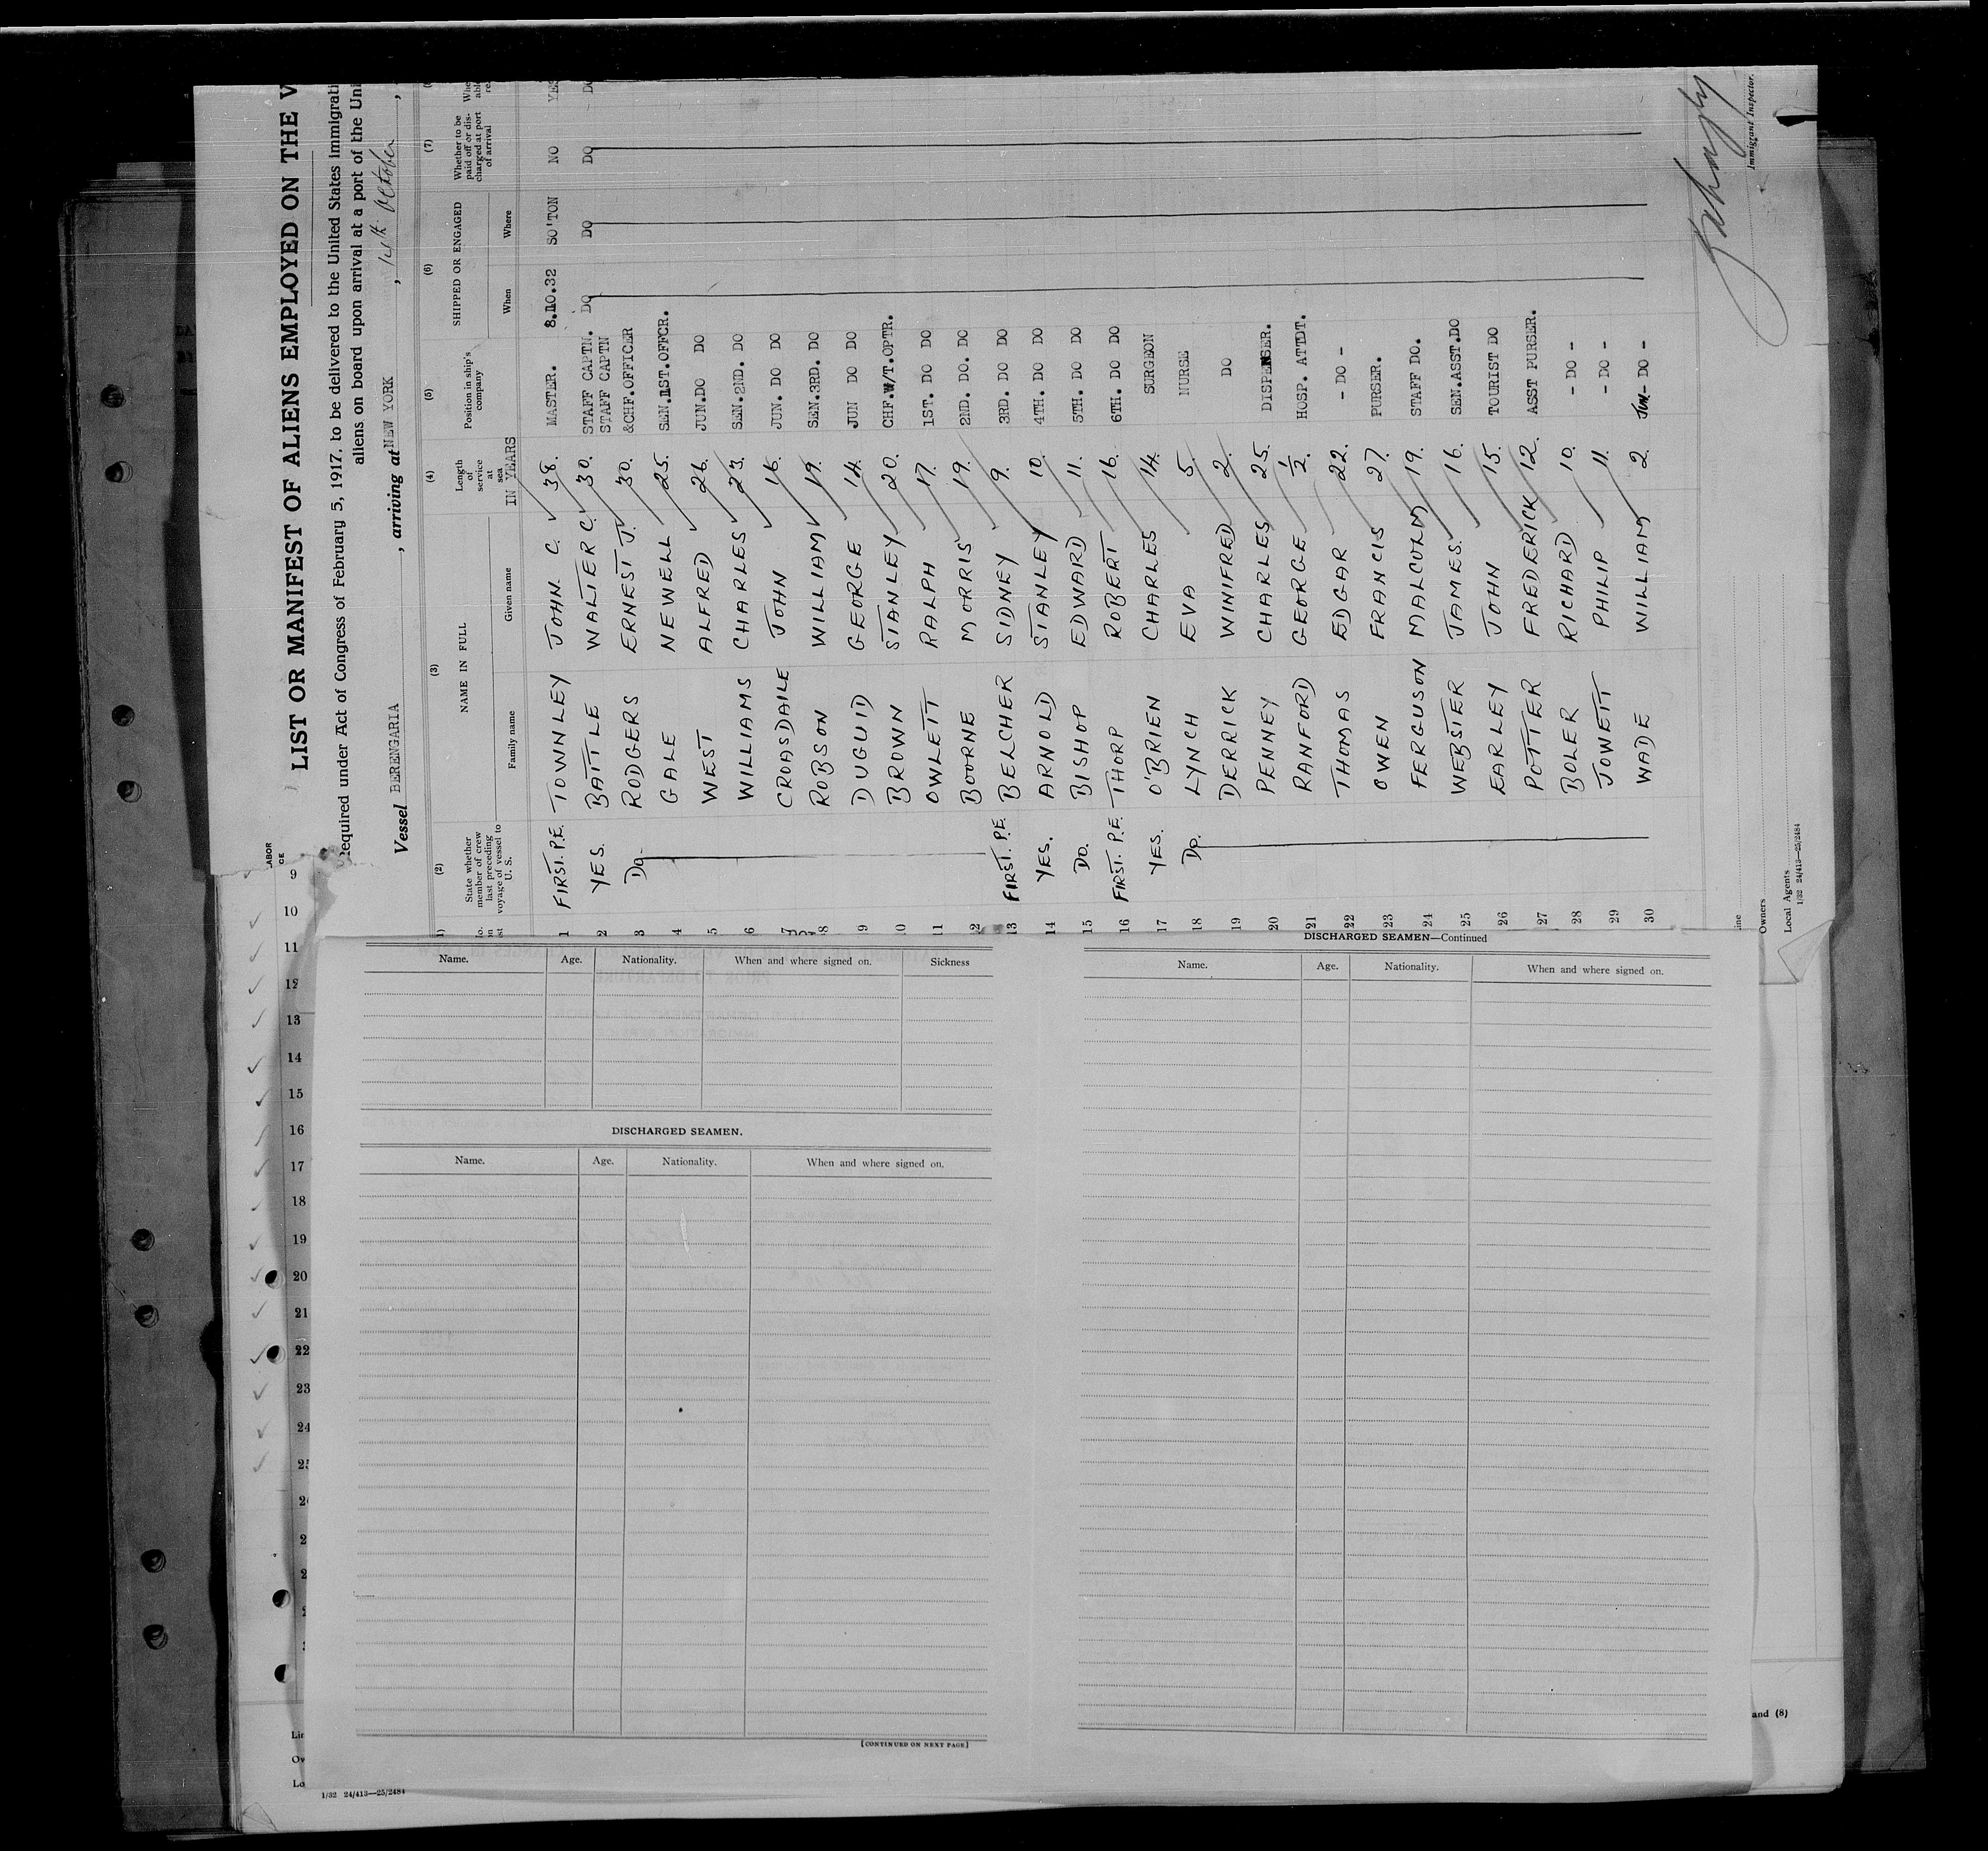 LIST OR MANIFEST OF ALIENS EMPLOYED ON THE V
Required under Act of Congress of February 5, 1917, to be delivered to the United States immigrati
aliens on board upon arrival at a port of the Uni
Vessel BERENGARIA , arriving at NEW YORK , 14th October ,
(2) (3) (4) (5) (6) (7)
State whether member of crew last preceding voyage of vessel to U. S. NAME IN FULL Family name Given name Length of service at sea IN YEARS Position in ship's company SHIPPED OR ENGAGED When Where Whether to be paid off or discharged at port of arrival
1 FIRST. P.E. TOWNLEY JOHN C. 38. MASTER. 8.10.32 SO'TON NO YES
2 YES. BATTLE WALTER C. 30. STAFF CAPTN. DO DO DO DO
3 DO. RODGERS ERNEST J. 30. STAFF CAPTN &CHF.OFFICER
4 GALE NEWELL 25. SEN.1ST.OFFCR.
5 WEST ALFRED 26. JUN.DO DO
6 WILLIAMS CHARLES 23. SEN.2ND. DO
7 CROASDAILE JOHN 16. JUN. DO DO
8 ROBSON WILLIAM 19. SEN.3RD. DO
9 DUGUID GEORGE 14. JUN DO DO
10 BROWN STANLEY 20. CHF.W/T.OPTR.
11 OWLETT RALPH 17. 1ST. DO DO
12 BOORNE MORRIS 19. 2ND. DO. DO
13 FIRST. P.E. BELCHER SIDNEY 9. 3RD. DO DO
14 YES. ARNOLD STANLEY 10. 4TH. DO DO
15 DO. BISHOP EDWARD 11. 5TH. DO DO
16 FIRST. P.E. THORP ROBERT 16. 6TH. DO DO
17 YES. O'BRIEN CHARLES 14. SURGEON
18 DO. LYNCH EVA 5. NURSE
19 DERRICK WINIFRED 2. DO
20 PENNEY CHARLES 25. DISPENSER.
21 RANFORD GEORGE 1/2. HOSP. ATTDT.
22 THOMAS EDGAR 22. - DO -
23 OWEN FRANCIS 27. PURSER.
24 FERGUSON MALCOLM 19. STAFF DO.
25 WEBSTER JAMES. 16. SEN.ASST.DO
26 EARLEY JOHN 15. TOURIST DO
27 POTTER FREDERICK 12. ASST PURSER.
28 BOLER RICHARD 10. - DO -
29 JOWETT PHILIP 11. - DO -
30 WADE WILLIAM 2. JUN - DO -
Immigrant Inspector.
ine
Owners
Local Agents
1/32 24/413—25/2484
LABOR
CE
9
10
11
12
13
14
15
16
17
18
19
20
21
22
23
24
Name. Age. Nationality. When and where signed on. Sickness
DISCHARGED SEAMEN.
Name. Age. Nationality. When and where signed on.
[CONTINUED ON NEXT PAGE]
DISCHARGED SEAMEN—Continued
Name. Age. Nationality. When and where signed on.
and (8)
Lin
Ow
Lo
1/32 24/413—25/2484